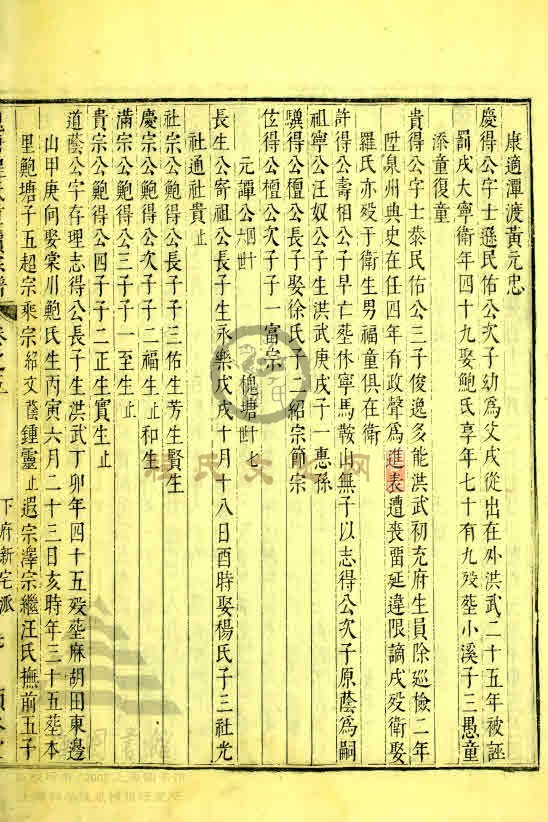 康適潭渡黃元忠
慶得公字士遜民佑公次子幼爲父戍從出在外洪武二十五年被誣
罰戍大寧衛年四十九娶鮑氏享年七十有九歿塟小溪子三愚童
添童復童
貴得公字士恭民佑公三子俊逸多能洪武初充府生員除巡儉二年
陞泉州典史在任四年有政聲爲進表遭喪畱延違限謫戍歿衛娶
羅氏亦歿于衛生男福童俱在衛
許得公壽相公子早亡塟休寧馬鞍山無子以志得公次子原蔭爲嗣
祖寧公汪奴公子生洪武庚戌子一惠孫
驥得公檀公長子娶徐氏子二紹宗節宗
伭得公檀公次子子一富宗
元譚公四十六世 槐塘十七世
長生公寄祖公長子生永樂戊戌十月十八日酉時娶楊氏子三社光
社通社貴止
社宗公鮑得公長子子三佑生芳生賢生
慶宗公鮑得公次子子二福生止和生
滿宗公鮑得公三子子一至生止
貴宗公鮑得公四子子二正生實生止
道蔭公字存理志得公長子生洪武丁卯年四十五歿塟麻胡田東邊
山甲庚向娶棠川鮑氏生丙寅六月二十三日亥時年三十五塟本
里鮑塘子五超宗乘宗紹文蔭鍾靈止遐宗澤宗繼汪氏撫前五子
卷之五
下府新宅派